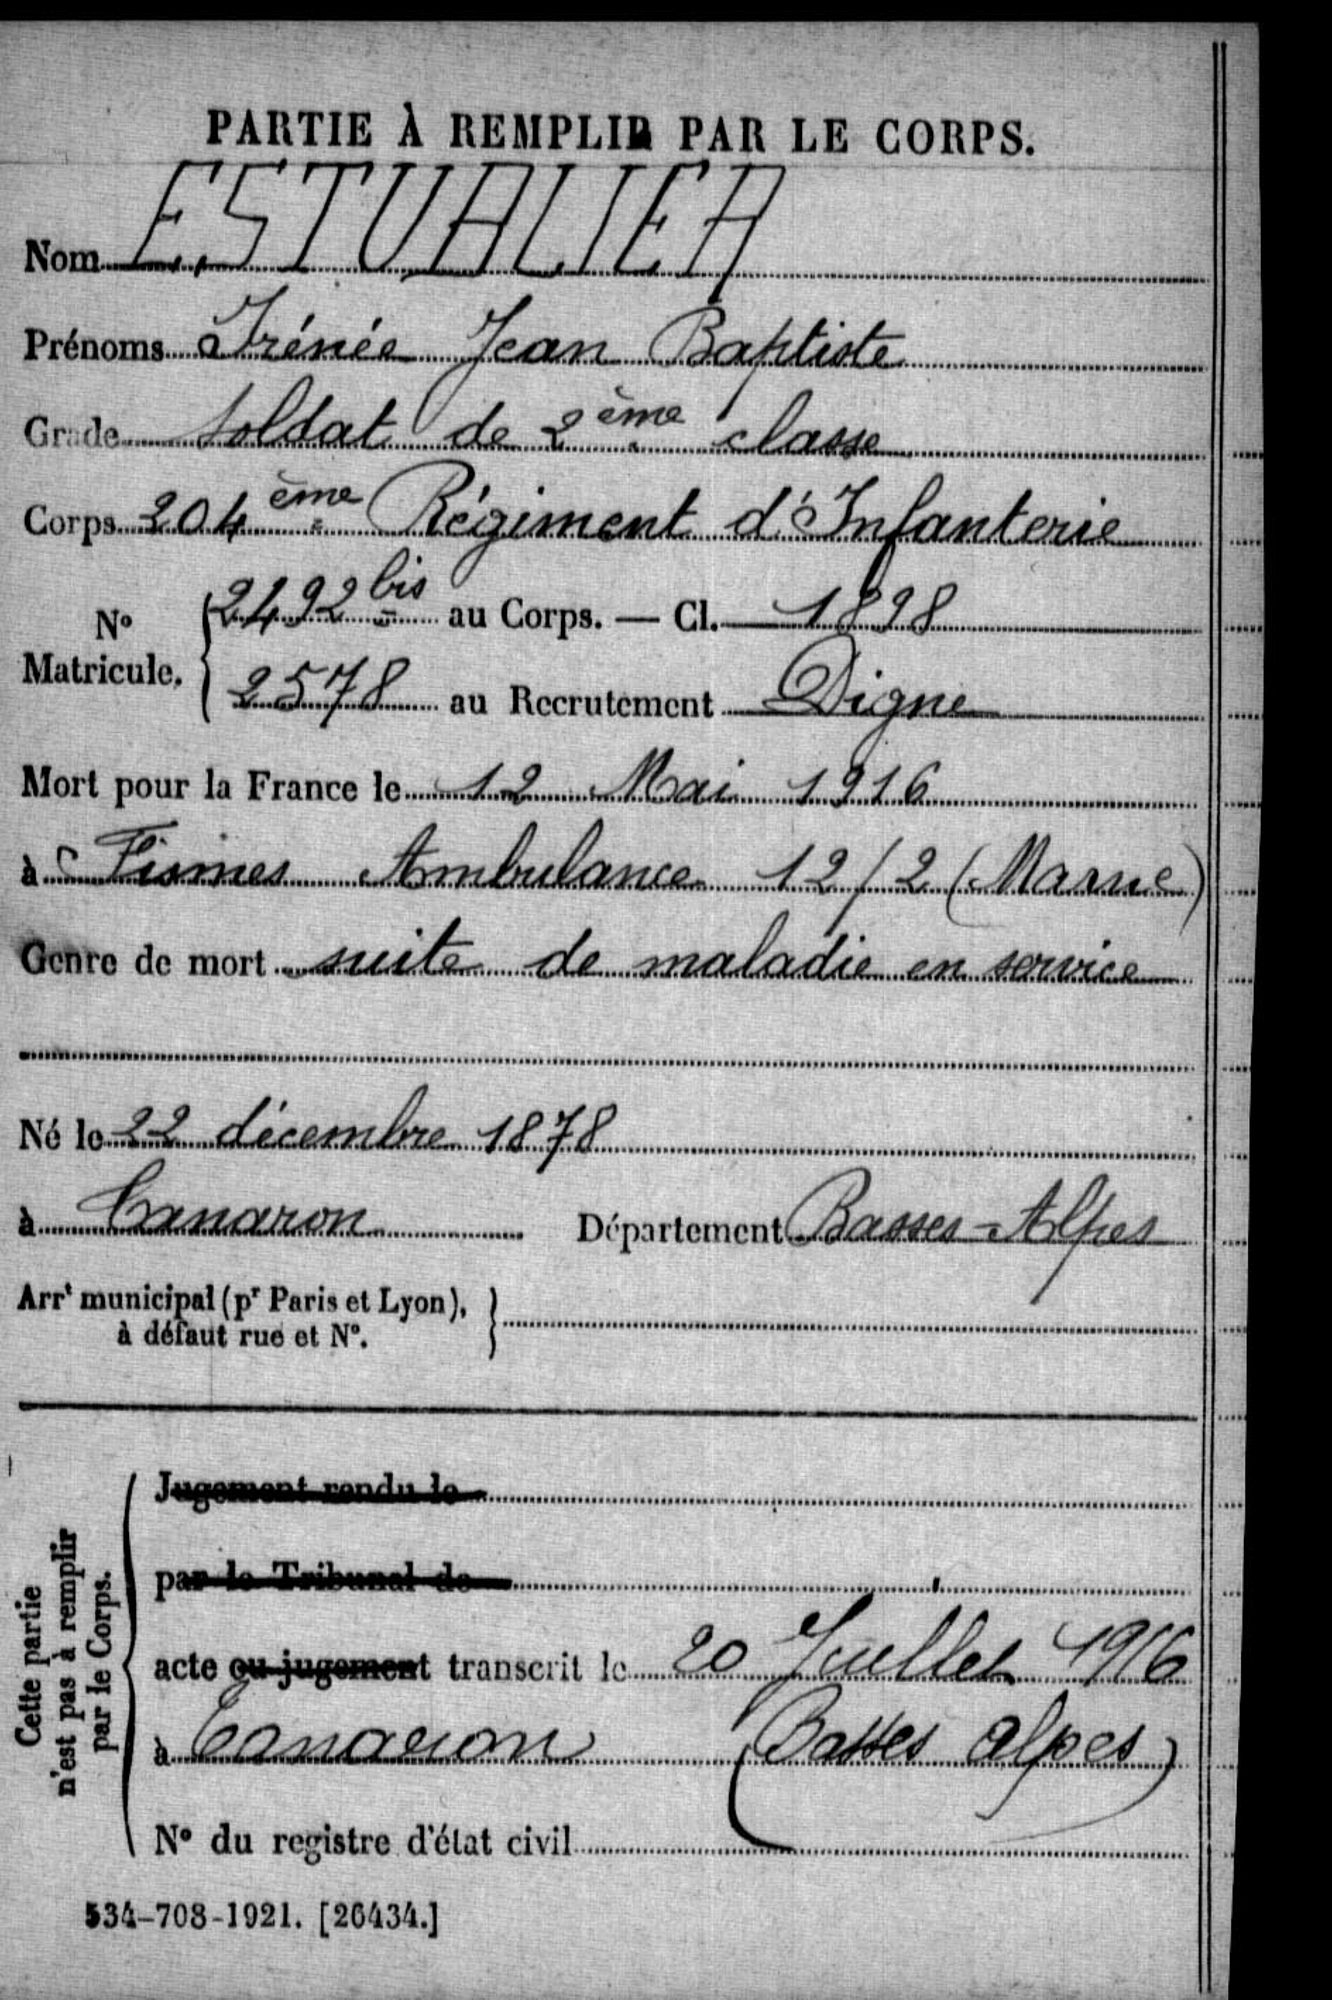 PARTIE À REMPLIR PAR LE CORPS.
Nom ESTUBLIER
Prénoms Irénée Jean Baptiste
Grade Soldat de 2ème classe
Corps 204ème Régiment d'Infanterie
N° Matricule. { 2492 bis au Corps. — Cl. 1898
2578 au Recrutement Digne
Mort pour la France le 12 Mai 1916
à Fismes Ambulance 12/2 (Marne)
Genre de mort suite de maladie en service
Né le 22 décembre 1878
à Tanaron Département Basses-Alpes
Arrt municipal (pr Paris et Lyon), }
à défaut rue et N°.
Cette partie
n'est pas à remplir
par le Corps.
Jugement rendu le
par le Tribunal de
acte ou jugement transcrit le 20 Juillet 1916
à Tanaron (Basses Alpes)
N° du registre d'état civil
534-708-1921. [26434.]